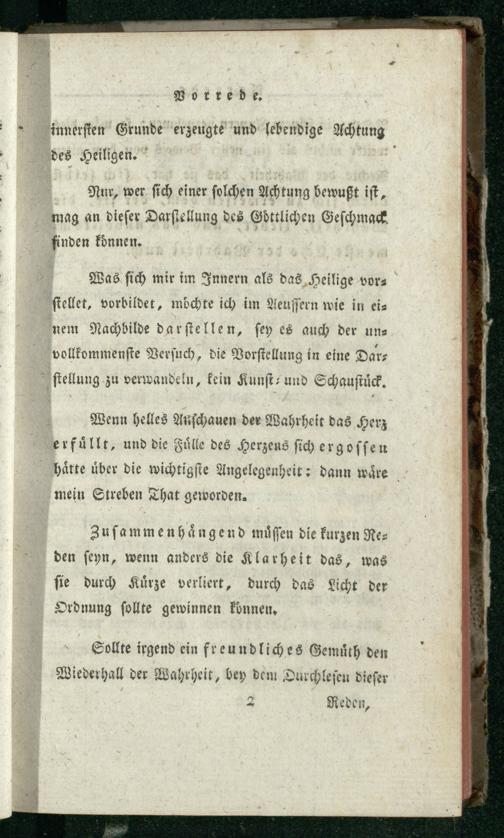 Vorrede.
innersten Grunde erzeugte und lebendige Achtung
des Heiligen.
Nur, wer sich einer solchen Achtung bewußt ist,
mag an dieser Darstellung des Göttlichen Geschmack
finden können.
Was sich mir im Innern als das Heilige vor-
stellet, vorbildet, möchte ich im Aeussern wie in ei-
nem Nachbilde darstellen, sey es auch der un-
vollkommenste Versuch, die Vorstellung in eine Dar-
stellung zu verwandeln, kein Kunst- und Schaustück.
Wenn helles Anschauen der Wahrheit das Herz
erfüllt, und die Fülle des Herzens sich ergossen
hätte über die wichtigste Angelegenheit: dann wäre
mein Streben That geworden.
Zusammenhängend müssen die kurzen Re-
den seyn, wenn anders die Klarheit das, was
sie durch Kürze verliert, durch das Licht der
Ordnung sollte gewinnen können.
Sollte irgend ein freundliches Gemüth den
Wiederhall der Wahrheit, bey dem Durchlesen dieser
2 Reden,